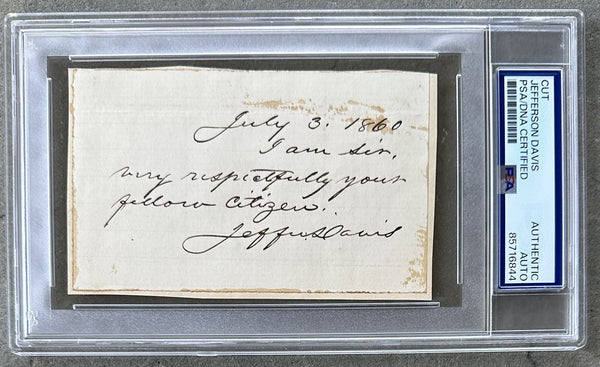 July 3. 1860
I am sir,
very respectfully your
fellow citizen.
Jeffn. Davis
CUT
JEFFERSON DAVIS
PSA/DNA CERTIFIED
PSA
AUTHENTIC
AUTO
85716844